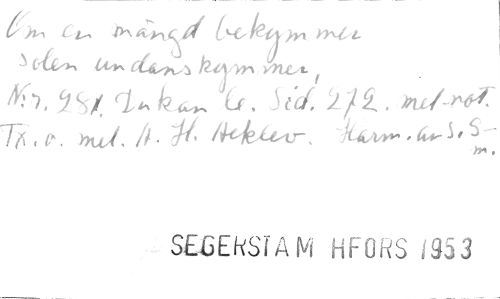 Om en mängd bekymmer
solen undanskymmer,
N:r. 281. Du kan le. Sid. 272. mel-not.
Tx. o. mel. A. H. Heklev. Harm. av S. S-
m.
SEGERSTAM HFORS 1953